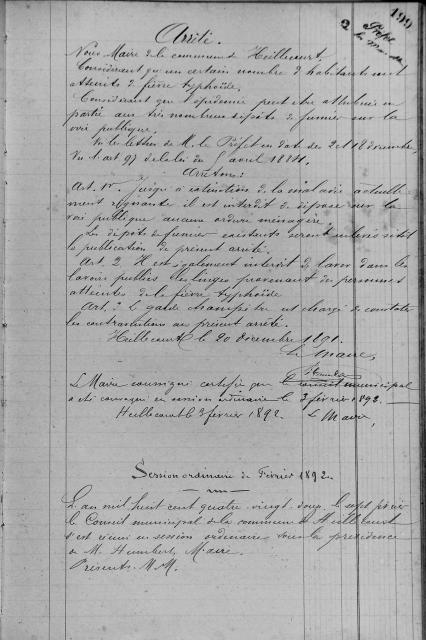 199
Arrêté.
Nous Maire de la commune de Heillecourt.
Considérant qu'un certain nombre d'habitants sont
atteints de fièvre typhoïde,
Considérant que l'épidémie peut être attribuée en
partie aux très nombreux dépôts de fumier sur la
voie publique,
Vu les lettres de M. le Préfet en date des 2 et 12 décembre,
Vu l'art 97 de la loi du 5 avril 1884.
Arrêtons:
Art. 1er Jusqu'à extinction de la maladie actuelle-
ment régnante il est interdit de déposer sur la
voie publique aucune ordure ménagère.
Les dépôts de fumier existants seront enlevés sitôt
la publication du présent arrêté.
Art. 2 Il est également interdit de laver dans les
lavoirs publics les linges provenant de personnes
atteintes de la fièvre typhoïde
Art. 3 Le garde champêtre est chargé de constater
les contraventions au présent arrêté.
Heillecourt le 20 décembre 1891.
Le Maire,
Le Maire soussigné certifie que le Conseil municipal
a été convoqué en session ordinaire le 3 février 1892.
Heillecourt le 3 février 1892. Le Maire,
Session ordinaire de Février 1892.
L'an mil huit cent quatre-vingt-douze le sept février
le Conseil municipal de la commune de Heillecourt
s'est réuni en session ordinaire sous la présidence
de M. Humbert, Maire.
Présents M.M.